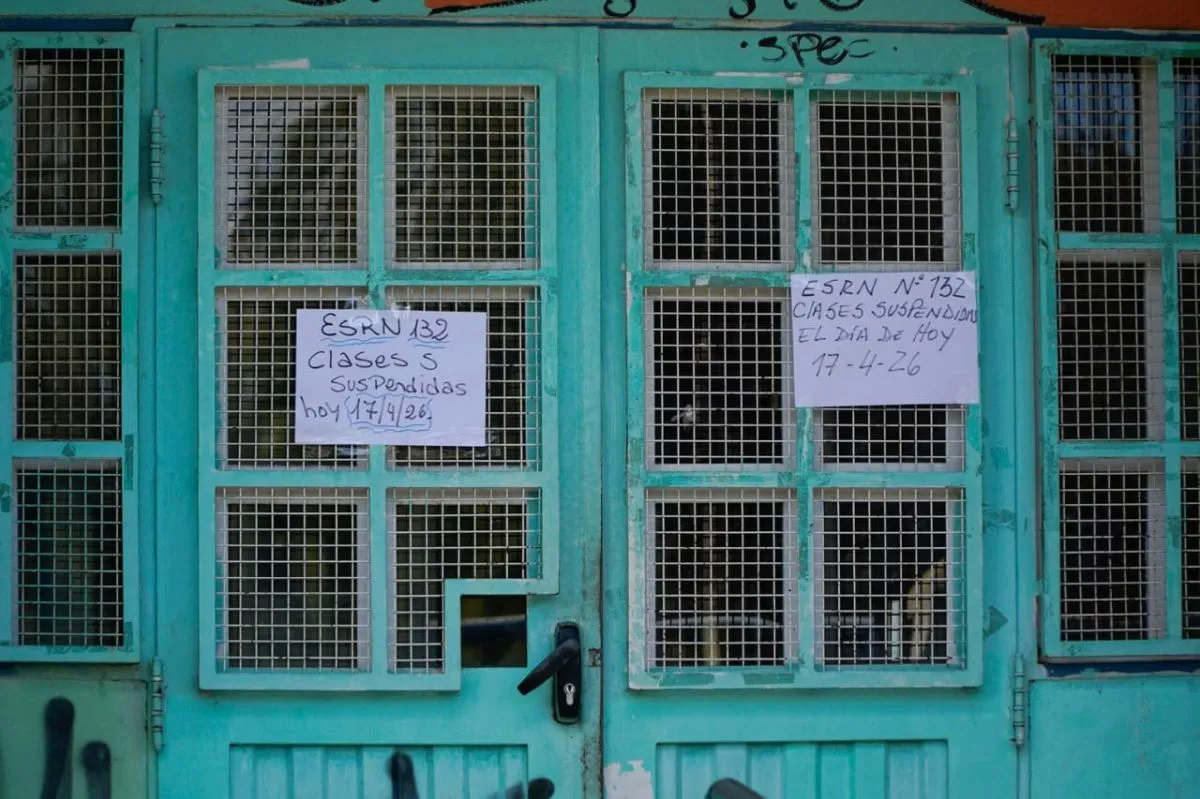 SPEC
ESRN 132
Clases S
SUSPendidas
hoy 17/4/26
ESRN Nº 132
ClASES SUSPENDIDAS
EL DÍA DE HOY
17-4-26